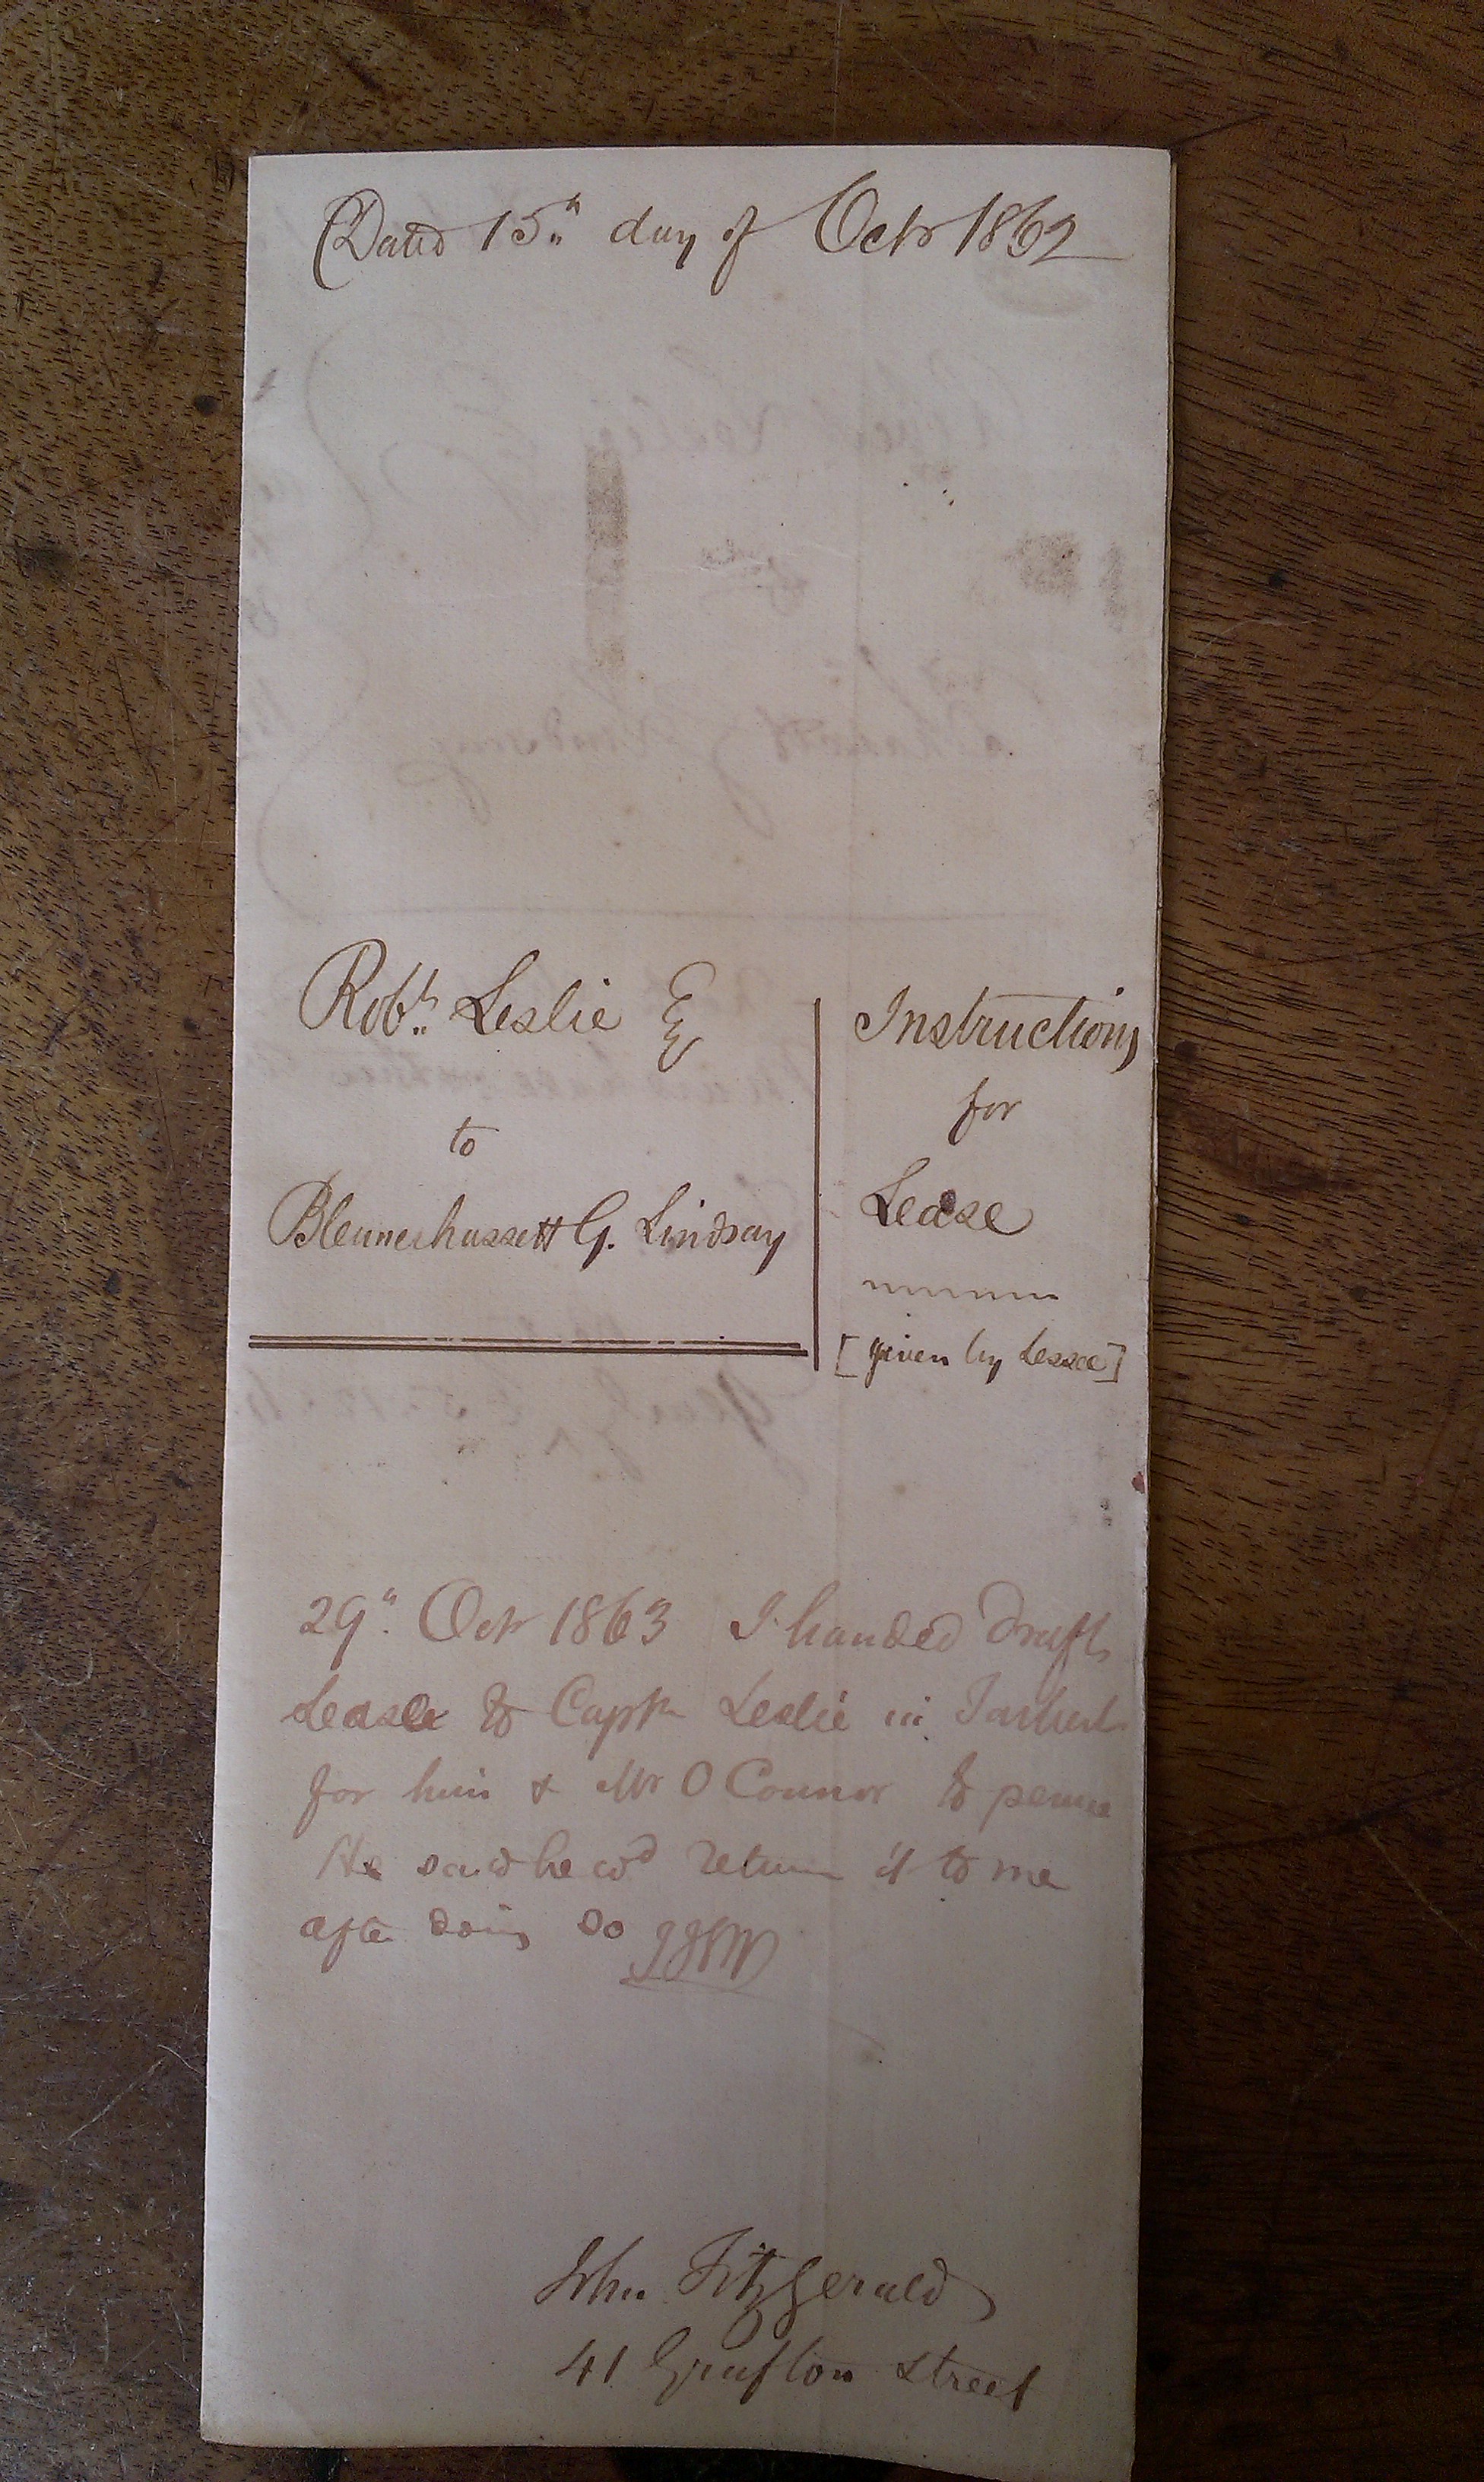 Dated 15th day of Octr 1862
Robt. Leslie Esq
to
Blennerhassett G. Lindsay
Instructions
for
Lease
[given by Lessee]
29th Octr 1863 I handed Draft
Lease to Captn Leslie in Tarbert
for him & Mr O Connor to peruse
He said he wd return it to me
after doing so
John FitzGerald
41 Grafton Street